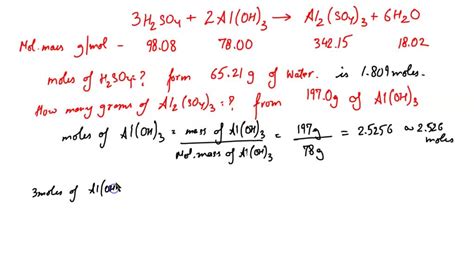 3H₂SO₄ + 2Al(OH)₃ → Al₂(SO₄)₃ + 6H₂O
Mol. mass g/mol - 98.08 78.00 342.15 18.02
moles of H₂SO₄ = ? form 65.21 g of Water. is 1.809 moles.
How many grams of Al₂(SO₄)₃ = ? from 197.0g of Al(OH)₃
moles of Al(OH)₃ = mass of Al(OH)₃ / Mol. mass of Al(OH)₃ = 197g / 78g = 2.5256 ≈ 2.526 moles
3 moles of Al(OH